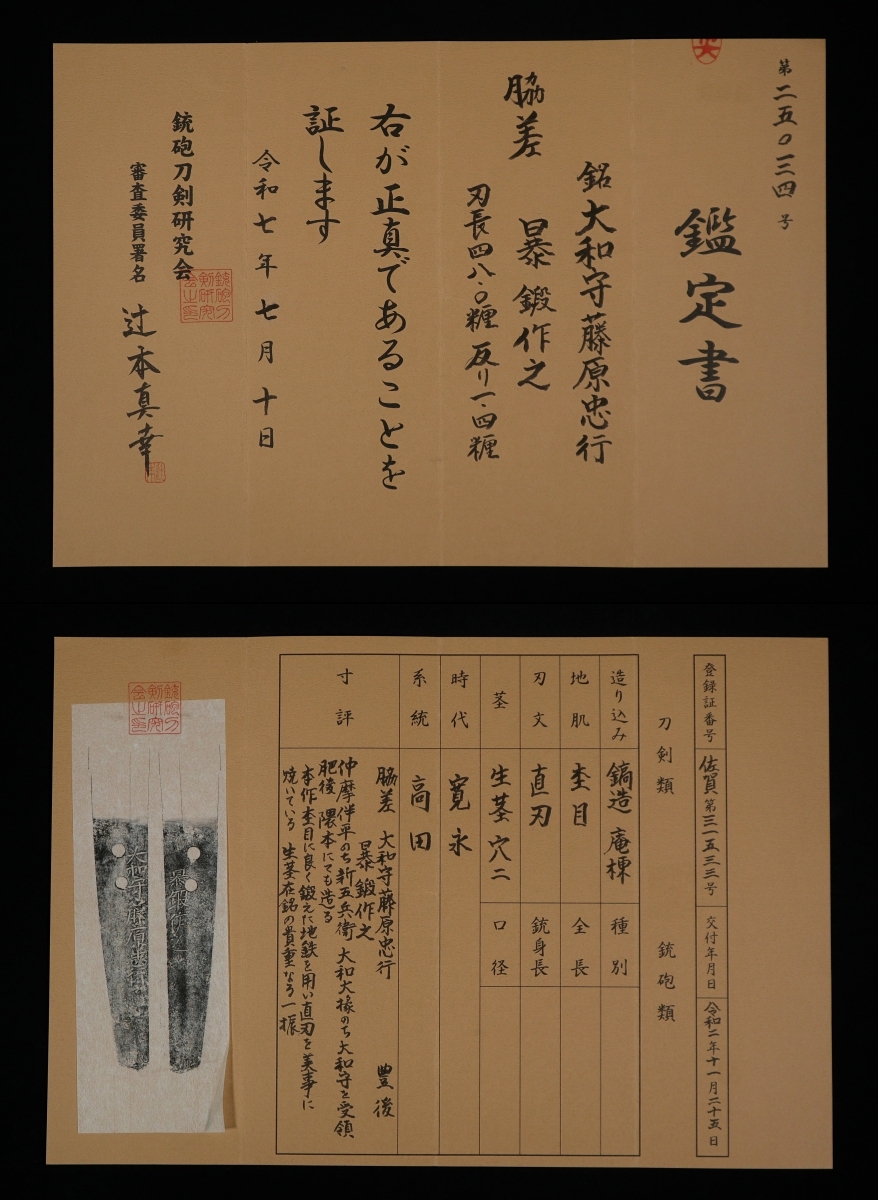 第二五〇三四号
鑑定書
銘 大和守藤原忠行
脇差 暴鍛作之
刃長四八・〇糎 反り一・四糎
右が正真であることを
証します
令和七年七月十日
銃砲刀剣研究会
審査委員署名 辻本真幸
登録証番号 佐賀第三一五三三号 交付年月日 令和二年十一月二十五日
刀剣類 銃砲類
造り込み 鎬造 庵棟 種別
地肌 杢目 全長
刃文 直刃 銃身長
茎 生茎 穴二 口径
時代 寛永
系統 高田
寸評
脇差 大和守藤原忠行 豊後
暴鍛作之
仲摩伴平のち新五兵衛 大和大掾のち大和守を受領
肥後 隈本にても造る
本作杢目に良く鍛えた地鉄を用い直刃を美事に
焼いている 生茎在銘の貴重なる一振
大和守藤原忠行